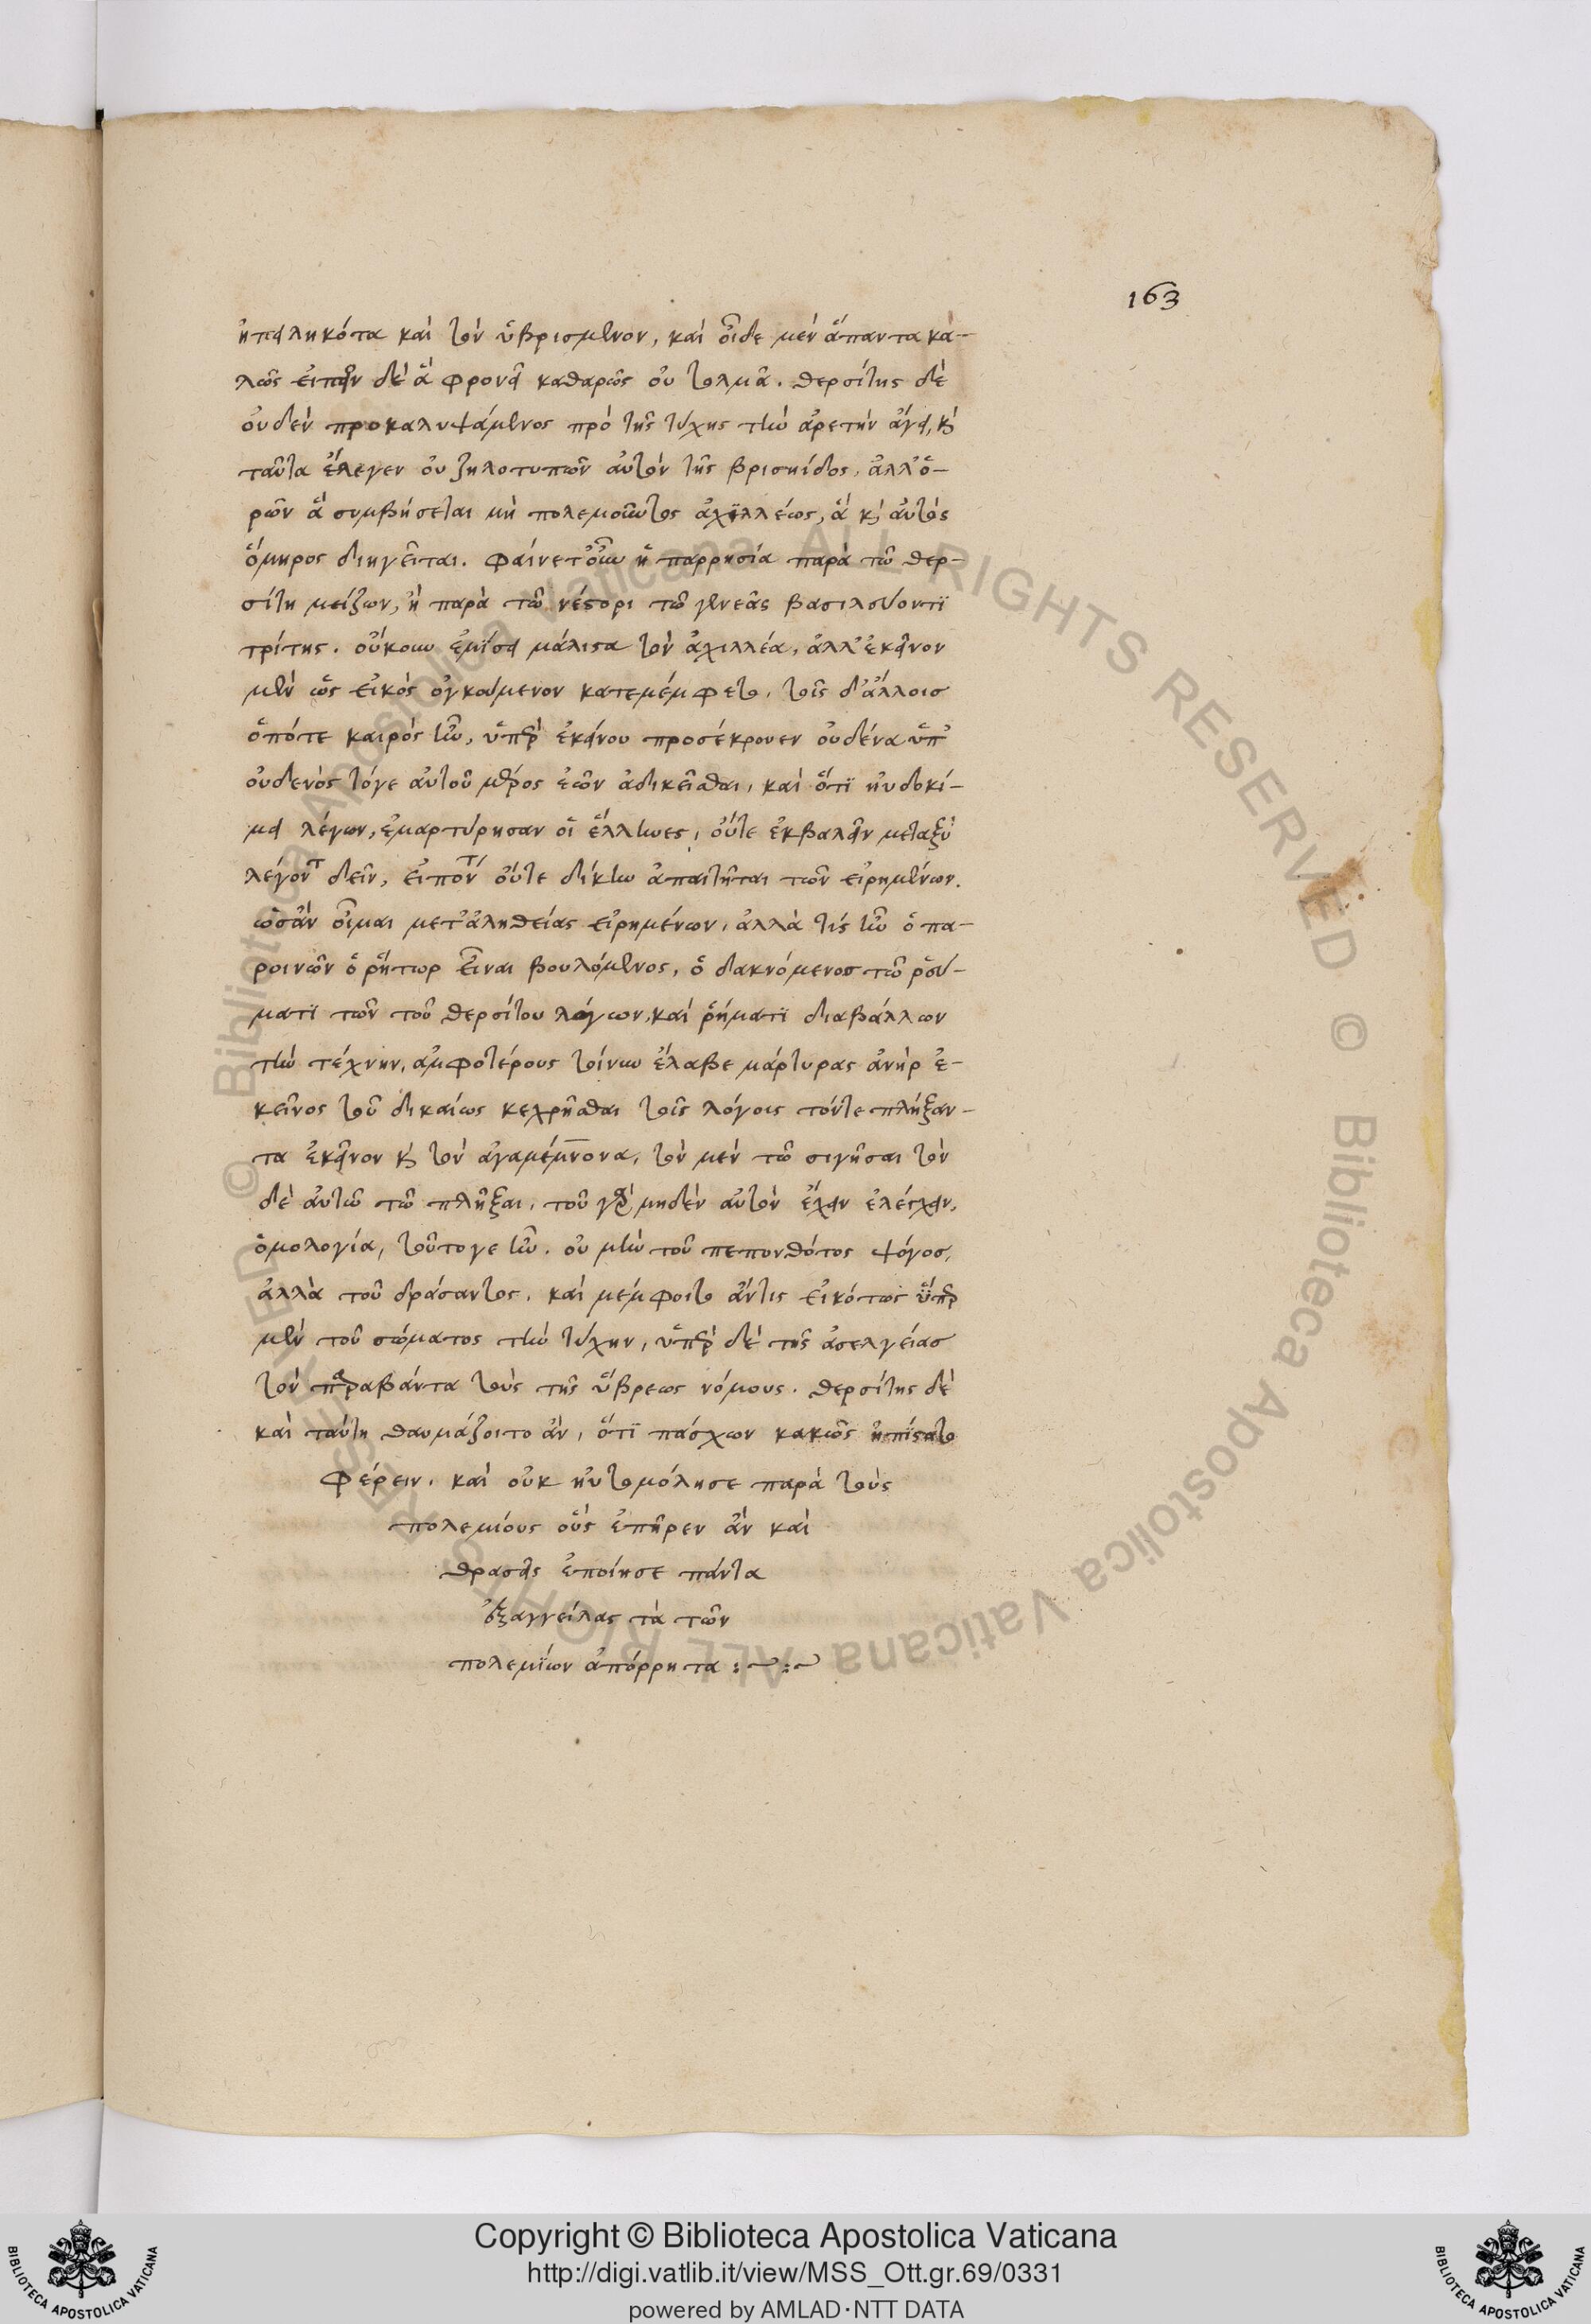 163
ἠπειληκότα καὶ τὸν ὑβρισμένον, καὶ οἶδε μὲν ἅπαντα κα-
λῶς εἰπεῖν δὲ ἃ φρονεῖ καθαρῶς οὐ τολμᾶ. θερσίτης δὲ
οὐδὲν προκαλυψάμενος πρὸ τῆς τύχης τὴν ἀρετὴν ἄγει, καὶ
ταῦτα ἔλεγεν οὐ ζηλοτυπῶν αὐτὸν τῆς βρισηίδος, ἀλλ' ὁ-
ρῶν ἃ συμβήσεται μὴ πολεμοῦντος ἀχιλλέως, ἃ καὶ αὐτὸς
ὅμηρος διηγεῖται. φαίνετ' οὖν ἡ παρρησία παρὰ τῶ θερ-
σίτη μείζων, ἢ παρὰ τῶ νέστορι τῶ γενεᾶς βασιλεύοντϊ
τρίτης. οὔκουν ἐμίσει μάλιστα τὸν ἀχιλλέα, ἀλλ' ἐκεῖνον
μὲν ὡς εἰκὸς ὀγκούμενον κατεμέμφετο, τοῖς δ' ἄλλοισ
ὁπότε καιρὸς ἦν, ὑπὲρ ἐκείνου προσέκρουεν οὐδένα ὑπ'
οὐδενὸς τόγε αὐτοῦ μέρος ἐῶν ἀδικεῖσθαι, καὶ ὅτϊ ηὐδοκί-
μει λέγων, ἐμαρτύρησαν οἱ ἕλληνες, οὔτε ἐκβαλεῖν μεταξὺ
λέγοντ δεῖν, εἰπόντ οὔτε δίκην ἀπαιτῆται τῶν εἰρημένων.
ὡσὰν οἶμαι μετ' ἀληθείας εἰρημένων, ἀλλὰ τίς ἦν ὁ πα-
ροινῶν ὁ ῥήτωρ εἶναι βουλόμενος, ὁ δακνόμενοσ τῶ ῥεύ-
ματϊ τῶν τοῦ θερσίτου λόγων, καὶ ῥήματϊ διαβάλλων
τὴν τέχνην, ἀμφοτέρους τοίνυν ἔλαβε μάρτυρας ἀνὴρ ἐ-
κεῖνος τοῦ δικαίως κεχρῆσθαι τοῖς λόγοις τόντε πλήξαν-
τα ἐκεῖνον καὶ τὸν ἀγαμέμνονα, τὸν μὲν τῶ σιγῆσαι τὸν
δὲ αὐτῶ τῶ πλῆξαι, τοῦ γὰρ μηδὲν αὐτὸν ἔχειν ἐλέγχειν,
ὁμολογία, τοῦτογε ἦν. οὐ μὴν τοῦ πεπονθότος ψόγοσ,
ἀλλὰ τοῦ δράσαντος, καὶ μέμφοιτο ἄντις εἰκότως ὑπὲρ
μὲν τοῦ σώματος τὴν τύχην, ὑπὲρ δὲ τῆς ἀσελγείασ
τὸν παραβάντα τοὺς τῆς ὕβρεως νόμους. θερσίτης δὲ
καὶ ταύτη θαυμάζοιτο ἂν, ὅτϊ πάσχων κακῶς ἠπίστατο
φέρειν, καὶ οὐκ ηὐτομόλησε παρὰ τοὺς
πολεμίους οὓς ἐπῆρεν ἂν καὶ
θρασεῖς ἐποίησε πάντα
ἐξαγγείλας τὰ τῶν
πολεμίων ἀπόρρητα :~:~
© Biblioteca Apostolica Vaticana ALL RIGHTS RESERVED © Biblioteca Apostolica Vaticana ALL RIGHTS RESERVED
Copyright © Biblioteca Apostolica Vaticana
http://digi.vatlib.it/view/MSS_Ott.gr.69/0331
powered by AMLAD·NTT DATA
BIBLIOTECA APOSTOLICA VATICANA
BIBLIOTECA APOSTOLICA VATICANA